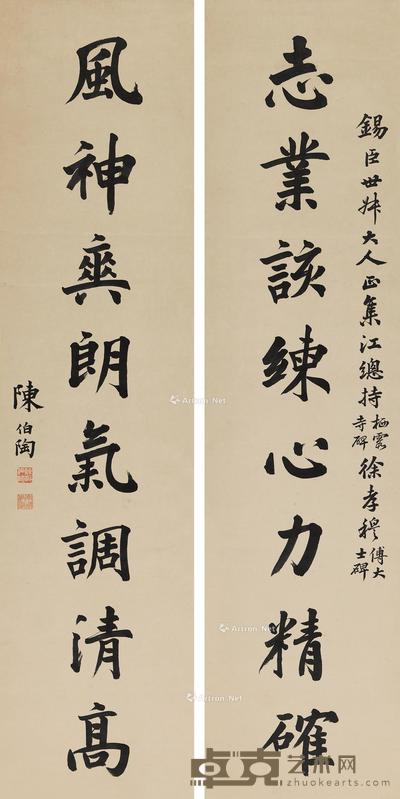 錫臣世叔大人正集江總持棲霞寺碑徐孝穆傅大士碑
志業該練心力精確
風神爽朗氣調清高
陳伯陶
Artron.Net
Artron.Net
Artron.Net
卓克艺术网
zhuokearts.com